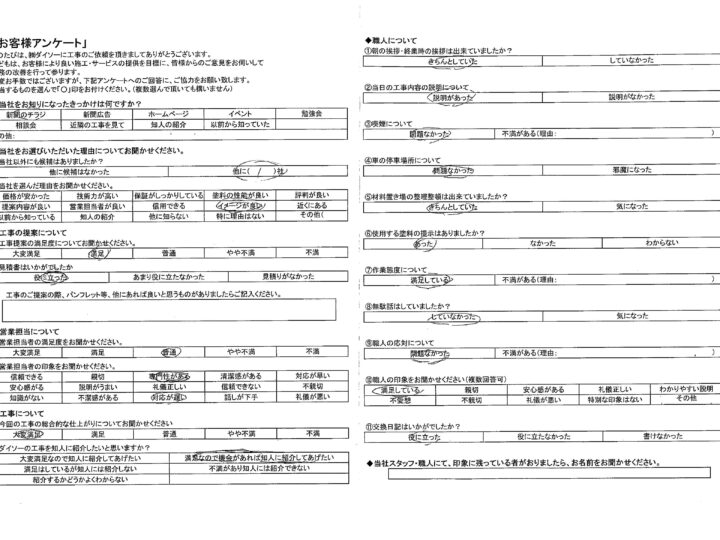 お客様アンケート」
のたびは、㈱ダイソーに工事のご依頼を頂きましてありがとうございます。
どもは、お客様により良い施工・サービスの提供を目標に、皆様からのご意見をお伺いして
務の改善を行って参ります。
変お手数ではございますが、下記アンケートへのご回答に、ご協力をお願い致します。
当するものを選んで「〇」印をお付けください。(複数選んで頂いても構いません)
当社をお知りになったきっかけは何ですか?
新聞のチラジ 新聞広告 ホームページ イベント 勉強会
相談会 近隣の工事を見て 知人の紹介 以前から知っていた
の他:
当社をお選びいただいた理由についてお聞かせください。
当社以外にも候補はありましたか?
他に候補はなかった 他に( / )社
当社を選んだ理由をお聞かせください。
価格が安かった 技術力が高い 保証がしっかりしている 塗料の性能が良い 評判が良い
提案内容が良い 営業担当者が良い 信用できる イメージが良い 近くにある
以前から知っている 知人の紹介 他に知らない 特に理由はない その他(
工事の提案について
工事提案の満足度についてお聞かせください。
大変満足 満足 普通 やや不満 不満
見積書はいかがでしたか
役に立った あまり役に立たなかった 見積りがなかった
工事のご提案の際、パンフレット等、他にあれば良いと思うものがありましたらご記入ください。
営業担当について
営業担当者の満足度をお聞かせください。
大変満足 満足 普通 やや不満 不満
営業担当者の印象をお聞かせください。
信頼できる 親切 専門性がある 清潔感がある 対応が早い
安心感がる 説明がうまい 礼儀正しい 信頼できない 不親切
知識がない 不潔感がある 対応が遅い 話しが下手 礼儀が悪い
工事について
今回の工事の総合的な仕上がりについてお聞かせください
大変満足 満足 普通 やや不満 不満
ダイソーの工事を知人に紹介したいと思いますか?
大変満足なので知人に紹介してあげたい 満足なので機会があれば知人に紹介してあげたい
満足はしているが知人には紹介しない 不満があり知人には紹介できない
紹介するかどうかよくわからない
◆職人について
①朝の挨拶・終業時の挨拶は出来ていましたか?
きちんとしていた していなかった
②当日の工事内容の説明について
説明があった 説明がなかった
③喫煙について
問題なかった 不満がある(理由:
④車の停車場所について
問題なかった 邪魔になった
⑤材料置き場の整理整頓は出来ていましたか?
きちんとしていた 気になった
⑥使用する塗料の提示はありましたか?
あった なかった わからない
⑦作業態度について
満足している 不満がある(理由:
⑧無駄話はしていましたか?
していなかった 気になった
⑨職人の応対について
問題なかった 不満がある(理由: )
⑩職人の印象をお聞かせください(複数回答可)
満足している 親切 安心感がある 礼儀正しい わかりやすい説明
不愛想 不親切 礼儀が悪い 特別な印象はない その他
⑪交換日記はいかがでしたか?
役に立った 役に立たなかった 書けなかった
◆当社スタッフ・職人にて、印象に残っている者がおりましたら、お名前をお聞かせください。